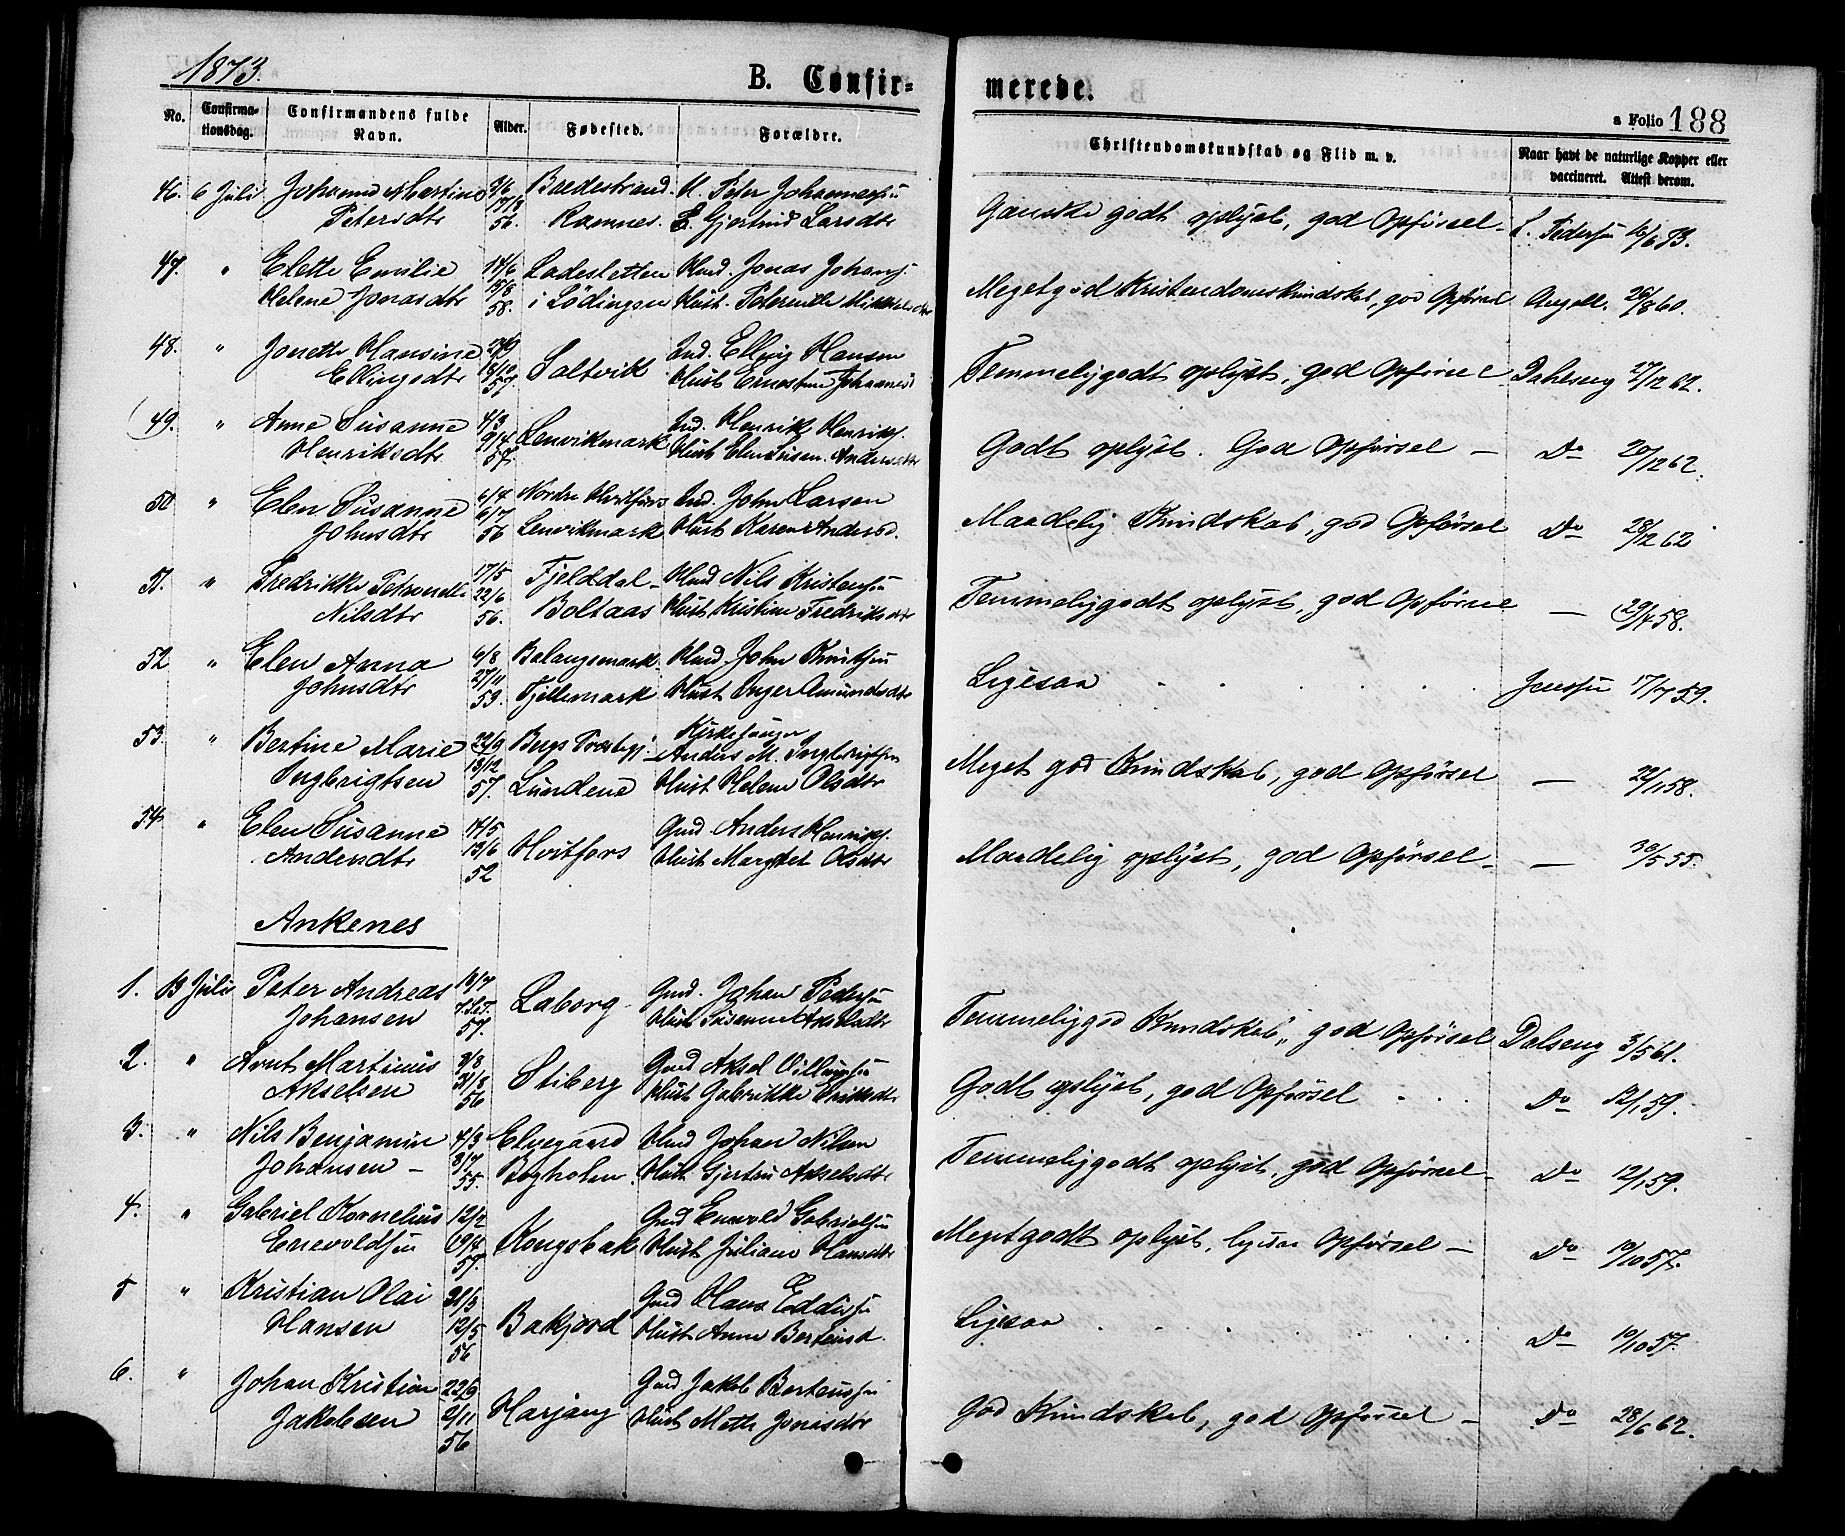 1873.
B. Confir-
merede.
a Folio 188
No.
Confirma-
tionsdag.
Confirmandens fulde
Navn.
Alder.
Fødested.
Forældre.
Christendomskundskab og Flid m. v.
Naar havt de naturlige Kopper eller
vaccineret. Attest derom.
46. 6 Juli Johanna Martine 3/6 U. Peter Johannessen
Petersdtr 56. Ramnes. E. Gjertrud Larsdtr
Ganske godt oplyst, god Opførsel - L. Pedersen 16/6 73.
47. " Elette Emilie 14/6 Ladesletten Hmd. Jonas Johans.
Helene Jonasdtr 15/8 58. i Lødingen Hust. Peternille Mikkelsdtr
Meget god Kristendomskundskab, god Opførsel Angell. 26/8 60.
48. " Jonette Hansine Ind. Elling Hansen
Ellingsdtr 18/10 57. Saltvik Hust Ernestine Johannesd
Temmelig godt oplyst, god Opførsel Dahlseng 27/12 62.
49. " Anne Susanne 4/3 Ind. Henrik Henriks.
Henriksdtr 9/4 57. Lenvikmark Hust Elen Susan. Andersdtr
Godt oplyst. God Opførsel - Do 20/12 62.
50 " Elen Susanne 6/4 Nordre Hvitfors Ind. John Larsen
Johnsdtr 6/7 56 Lenvikmark Hust Karen Andersd.
Maadelig Kundskab, god Opførsel Do 28/12 62
51. " Fredrikke Petronelle 17/5 Fjelddal- Hmd Nils Kristensen
Nilsdtr 22/6 56. Boltaas Hust Kristine Fredriksdtr
Temmelig godt oplyst, god Opførsel - 29/4 58.
52 " Elen Anna 6/8 Balangsmark Hmd. John Knutsen
Johnsdtr 27/11 59. Fjellemark Hust Inger Amundsdtr
Ligesaa Jenssen 17/7 59.
53. " Bertine Marie 22/9 Bergs Præstegj. Kirkesanger
Anders M. Ingbrigtsen
Ingbrigtsen 13/12 57. Lundene Hust Helene Olsdtr
Meget god Kundskab, god Opførsel - 22/1 58.
54 " Elen Susanne 14/5 Gmd. Anders Henriks.
Andersdtr 13/6 52 Hvitfors Hust Margret Olsdtr
Maadelig oplyst, god Opførsel - 30/5 55.
Ankenes
1. 13 Juli Peter Andreas 18/7 Gmd. Johan Pedersen
Johansen 57. Laborg. Hust Susanne Akselsdtr
Temmelig god Kundskab, god Opførsel Dalseng 3/5 61.
2. " Arnt Martinus 3/8 Gmd Aksel Villumsen
Akselsen 31/8 56 Stiberg Hust Gabrikke Eriksdtr
Godt oplyst, god Opførsel Do 12/1 59.
3. " Nils Benjamin 4/3 Elvegaard Hmd Johan Nilsen
Johansen - 3/7 55. Bogholm. Hust Gjertru Akselsdtr
Temmelig godt oplyst, god Opførsel - Do 12/1 59.
4. " Gabriel Kornelius 12/2 Gmd Enevold Gabrielsen
Enevoldsen 19/4 57. Kongsbak Hust Juliane Hansdtr
Meget godt oplyst, ligesaa Opførsel - Do 10/10 57.
5 " Kristian Olai 31/3 Gmd Hans Eddisen
Hansen 12/5 56 Bakjord Hust Anne Berteusd.
Ligesaa Do 10/10 57.
6. " Johan Kristian 22/9 Gmd Jakob Berteussen
Jakobsen 2/11 56 Harjang Hust Mette Jonasdtr
God Kundskab, god Opførsel - Do 28/6 62.